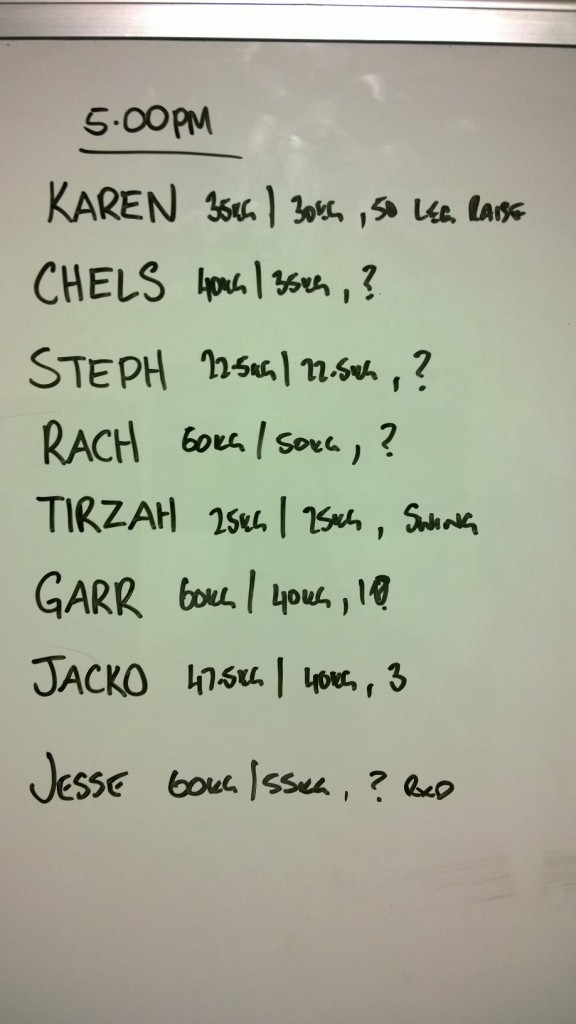 5.00PM
KAREN 35KG | 30KG, 50 LEG RAISE
CHELS 40KG | 35KG, ?
STEPH 22.5KG | 22.5KG, ?
RACH 60KG / 50KG, ?
TIRZAH 25KG | 25KG, SWING
GARR 60KG / 40KG,
JACKO 47.5KG | 40KG, 3
JESSE 60KG / 55KG, ? RXD